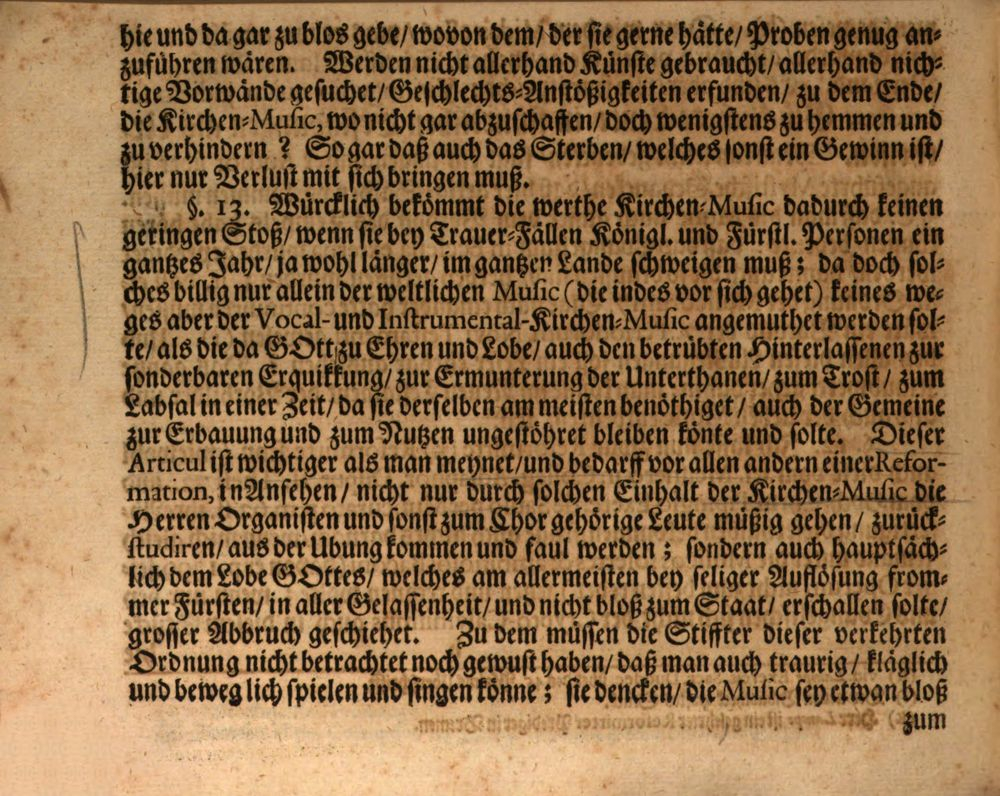 hie und da gar zu blos gebe/ wovon dem/ der sie gerne hätte/ Proben genug an-
zuführen wären. Werden nicht allerhand Künste gebraucht/ allerhand nich-
tige Vorwände gesuchet/ Geschlechts-Anstößigkeiten erfunden/ zu dem Ende/
die Kirchen-Music, wo nicht gar abzuschaffen/ doch wenigstens zu hemmen und
zu verhindern ? So gar daß auch das Sterben/ welches sonst ein Gewinn ist/
hier nur Verlust mit sich bringen muß.
§. 13. Würcklich bekömmt die werthe Kirchen-Music dadurch keinen
geringen Stoß/ wenn sie bey Trauer-Fällen Königl. und Fürstl. Personen ein
gantzes Jahr/ ja wohl länger/ im gantzen Lande schweigen muß ; da doch sol-
ches billig nur allein der weltlichen Music (die indes vor sich gehet) keines we-
ges aber der Vocal- und Instrumental-Kirchen-Music angemuthet werden sol-
te/ als die da GOtt zu Ehren und Lobe/ auch den betrübten Hinterlassenen zur
sonderbaren Erquikkung/ zur Ermunterung der Unterthanen/ zum Trost/ zum
Labsal in einer Zeit/ da sie derselben am meisten benöthiget/ auch der Gemeine
zur Erbauung und zum Nutzen ungestöhret bleiben könte und solte. Dieser
Articul ist wichtiger als man meynet/ und bedarff vor allen andern einer Refor-
mation, in Ansehen/ nicht nur durch solchen Einhalt der Kirchen-Music die
Herren Organisten und sonst zum Chor gehörige Leute müßig gehen/ zurück-
studiren/ aus der Ubung kommen und faul werden ; sondern auch hauptsäch-
lich dem Lobe GOttes/ welches am allermeisten bey seliger Auflösung from-
mer Fürsten/ in aller Gelassenheit/ und nicht bloß zum Staat/ erschallen solte/
grosser Abbruch geschiehet. Zu dem müssen die Stiffter dieser verkehrten
Ordnung nicht betrachtet noch gewust haben/ daß man auch traurig/ kläglich
und beweglich spielen und singen könne ; sie dencken/ die Music sey etwan bloß
zum